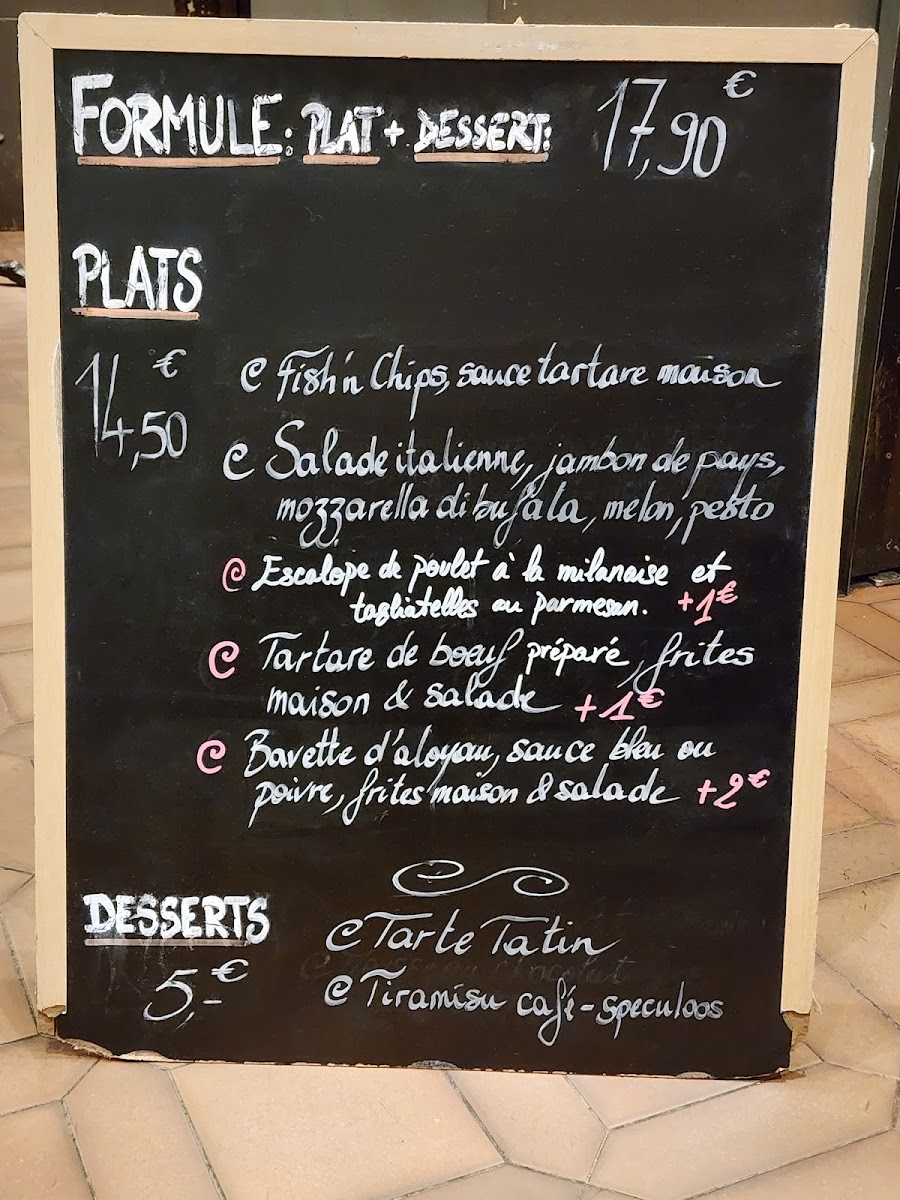 FORMULE: PLAT + DESSERT: 17,90€
PLATS
14,50€
Fish'n Chips, sauce tartare maison
Salade italienne, jambon de pays,
mozzarella di bufala, melon, pesto
Escalope de poulet à la milanaise et
tagliatelles au parmesan. +1€
Tartare de bœuf préparé, frites
maison & salade +1€
Bavette d'aloyau, sauce bleu ou
poivre, frites maison & salade +2€
DESSERTS
5,-€
Tarte Tatin
Tiramisu café-speculoos